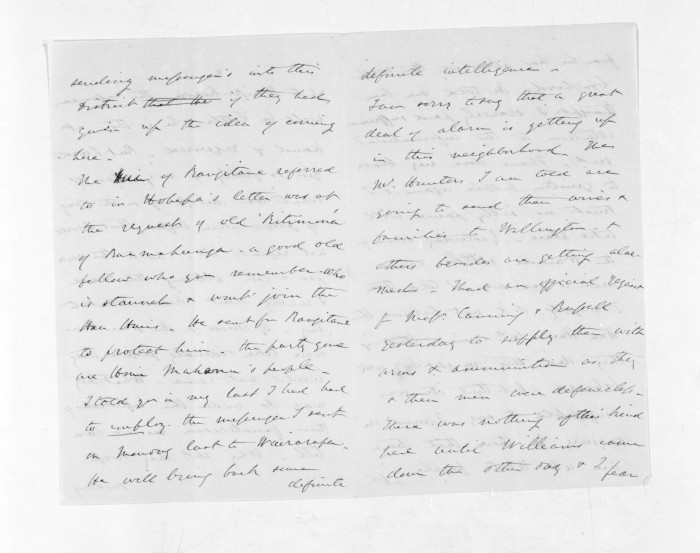 sending messengers into this
District that the if they had
given up the idea of coming
here.
The of Rangitane referred
to in Hohepa's letter was at
the request of old Ritimona
of Raumahanga - a good old
fellow who you remember who
is staunch & won't join the
Hau Haus - He sent for Rangitane
to protect him - the party
are Homi people -
I told you in my last I had had
to employ the messenger I sent
on Monday last to Wairarapa -
He will bring back some
definite
definite intelligence -
I am sorry to say that a great
deal of alarm is getting up
in this neighborhood The
Mr. Hunters I am told are
going to send their wives &
families to Wellington &
others besides are getting alar-
med - I had an official
of Messrs. Canning & Russell
Yesterday to supply them with
arms & ammunition as they
& their men were defenceless -
there was nothing of this kind
here until Williams came
down the other day & I fear